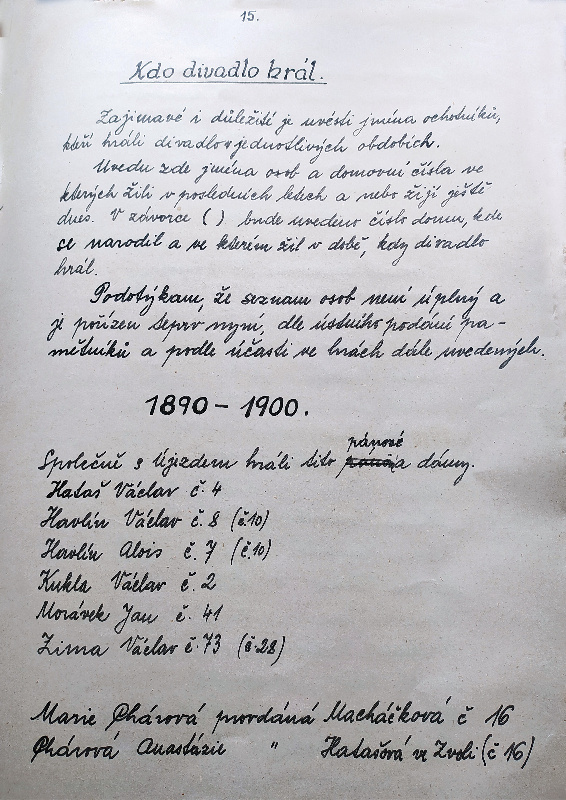 15.
Kdo divadlo hrál.
Zajímavé i důležité je uvésti jména ochotníků,
kteří hráli divadlo v jednotlivých obdobích.
Uvedu zde jména osob a domovní čísla ve
kterých žili v posledních letech a nebo žijí ještě
dnes. V závorce ( ) bude uvedeno číslo domu, kde
se narodil a ve kterém žil v době, kdy divadlo
hrál.
Podotýkam, že seznam osob není úplný a
je pořízen teprv nyní, dle ústního podání pa-
mětníků a podle účasti ve hrách dále uvedených.
1890 - 1900.
pánové
Společně s Újezdem hráli tito a dámy.
Hataš Václav č. 4
Havlín Václav č. 8 (č.10)
Havlín Alois č. 7 (č.10)
Kukla Václav č. 2
Morávek Jan č. 41
Zima Václav č. 73 (č.28)
Marie Phárová provdáná Macháčková č 16
Phárová Anastázie " Hatašová ve Zvoli (č 16)